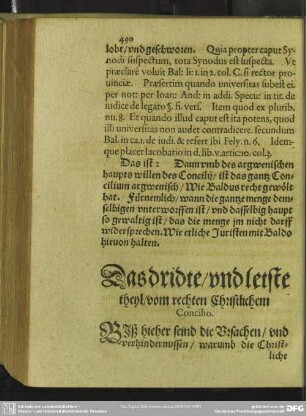 400
lobt / vnd geschworen. Quia propter caput Sy-
nodi suspectum, tota Synodus est suspecta. Vt
præclarè voluit Bal: li: 1. in 3. col. C. si rector pro-
uinciæ. Præsertim quando vniuersitas subest ei.
per not: per Ioan: And: in addi. Specu: in tit. de
iudice de legato §. si. vers. Item quod ex plurib.
nu. 8. Et quando illud caput est ita potens, quod
illi vniuersitas non audet contradicere. secundum
Bal. in ca. 1. de iudi. & refert ibi Fely. n. 6. Idem-
que placet Iacobatio in d. lib. v. artic. 10. col. 3.
Das ist: Dann vmb des argwenischen
haupts willen des Concilij / ist das gantz Con-
cilium argwenisch / Wie Baldus recht gewölt
hat. Fürnemlich / wann die gantze menge dem-
selbigen vnterworffen ist / vnd dasselbig haupt
so gewaltig ist / das die menge jm nicht darff
widersprechen. Wie etliche Juristen mit Baldo
hieuon halten.
Das dridte / vnd letste
theyl / vom rechten Christlichem
Concilio.
BIß hieher seind die Vrsachen / vnd
verhindernussen / warumb die Christ-
liche